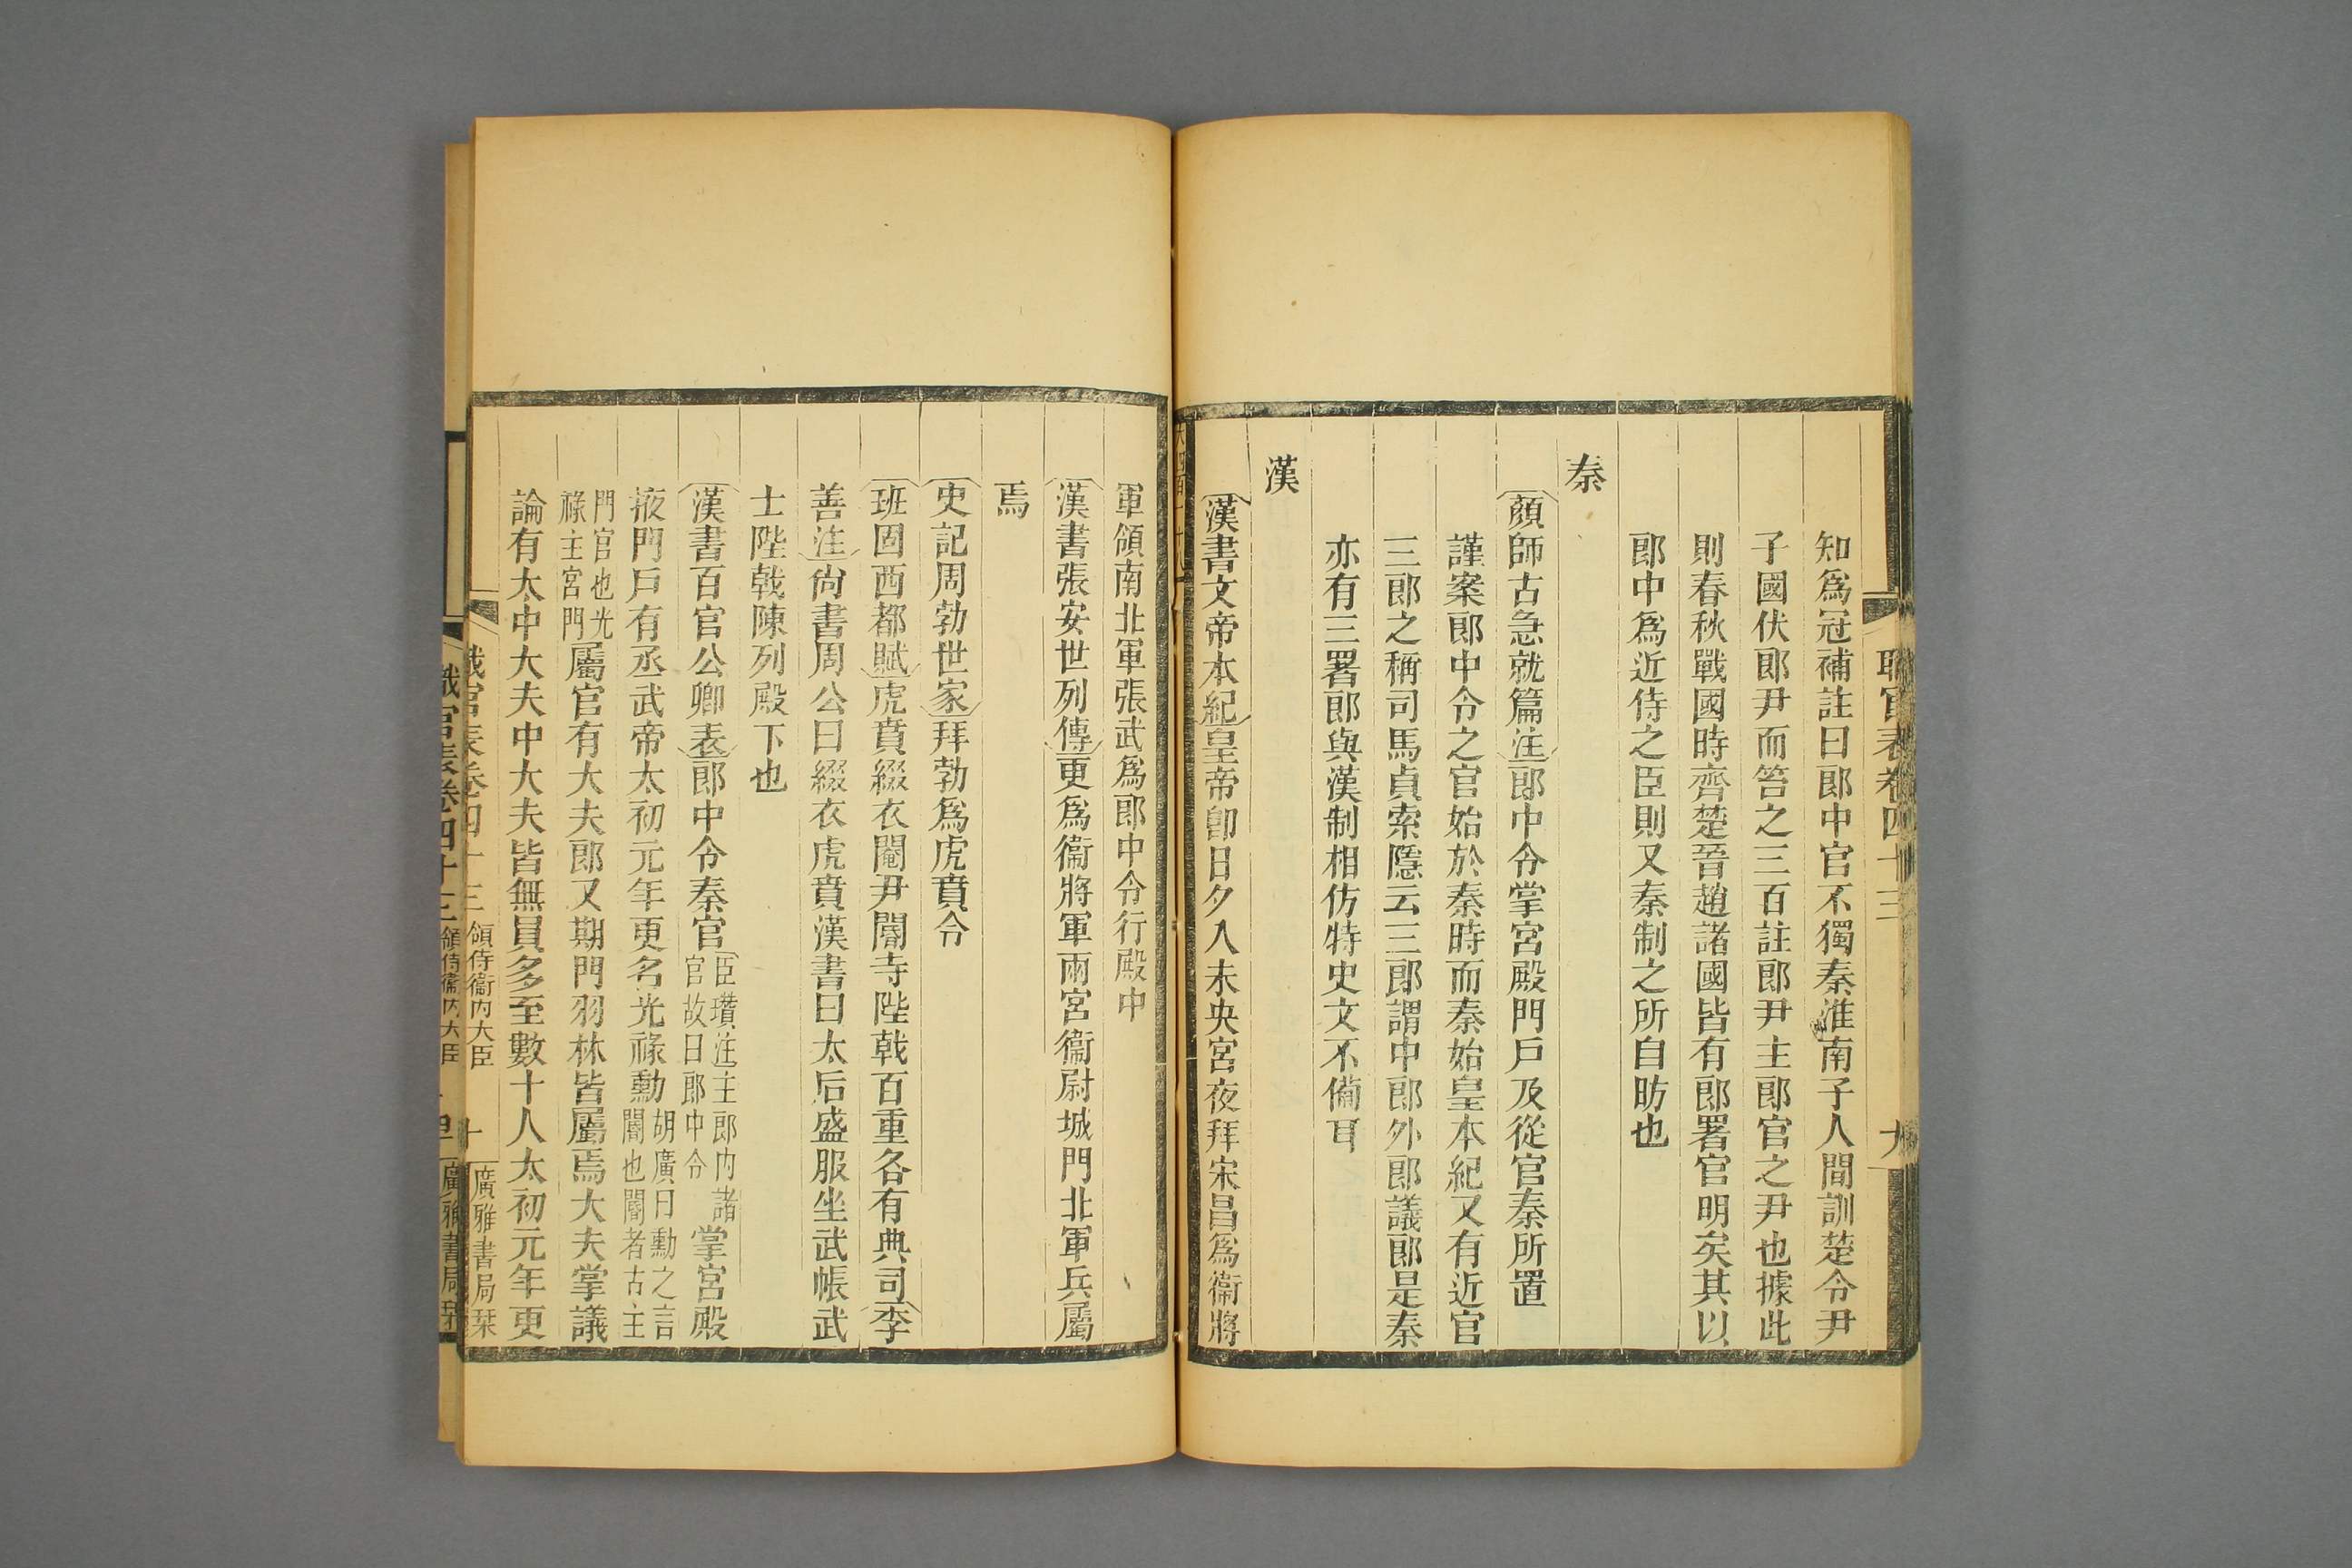 知爲冠補註曰郎中官不獨秦淮南子人間訓楚令尹
子國伏郎尹而笞之三百註郎尹主郎官之尹也據此
則春秋戰國時齊楚晉趙諸國皆有郎署官明矣其以
郎中爲近侍之臣則又秦制之所自昉也
秦
顏師古急就篇注郎中令掌宮殿門戸及從官秦所置
謹案郎中令之官始於秦時而秦始皇本紀又有近官
三郎之稱司馬貞索隱云三郎謂中郎外郎議郎是秦
亦有三署郎與漢制相仿特史文不備耳
漢
漢書文帝本紀皇帝卽日夕入未央宮夜拜宋昌爲衞將
軍領南北軍張武爲郎中令行殿中
漢書張安世列傳更爲衞將軍兩宮衞尉城門北軍兵屬
焉
史記周勃世家拜勃爲虎賁令
班固西都賦虎賁綴衣閹尹閽寺陛戟百重各有典司李
善注尚書周公曰綴衣虎賁漢書曰太后盛服坐武帳武
士陛戟陳列殿下也
漢書百官公卿表郎中令秦官臣瓚注主郎內諸官故曰郎中令掌宮殿
掖門戸有丞武帝太初元年更名光祿勳胡廣曰勳之言閽也閽者古主
門官也光祿主宮門屬官有大夫郎又期門羽林皆屬焉大夫掌議
論有太中大夫中大夫皆無員多至數十人太初元年更
職官表卷四十三 領侍衞內大臣 十 廣雅書局栞